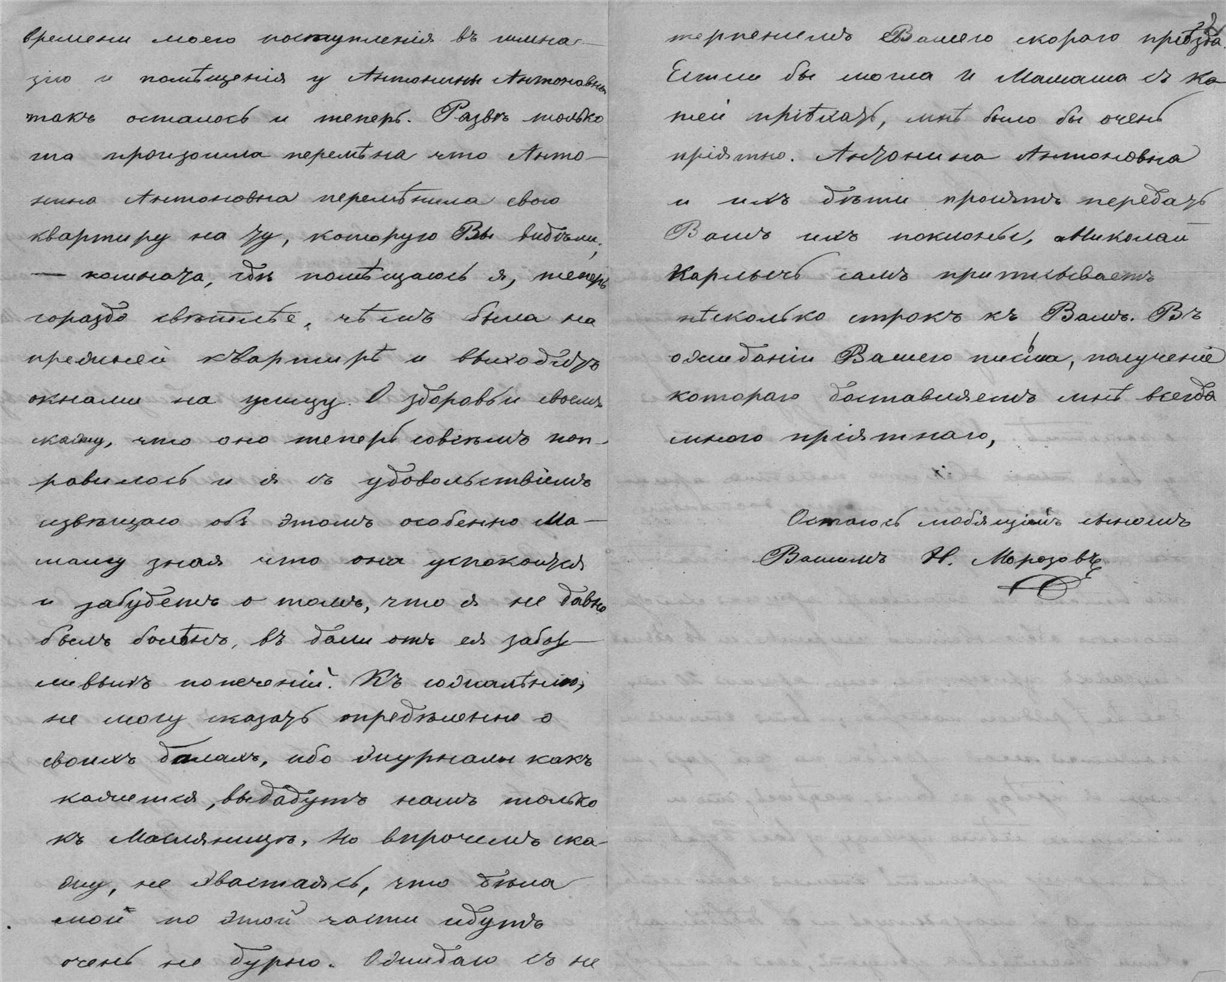 времени моего поступленія въ гимна-
зію и помѣщенія у Антонины Антоновны
такъ осталось и теперь. Развѣ только
та произошла перемѣна что Анто-
нина Антоновна перемѣнила свою
квартиру на ту, которую Вы видѣли,
— комната, гдѣ помѣщаюсь я, теперь
гораздо свѣтлѣе, чѣмъ была на
прежней квартирѣ и выходитъ
окнами на улицу. О здоровьи своемъ
скажу, что оно теперь совсѣмъ поп-
равилось и я съ удовольствіемъ
извѣщаю объ этомъ особенно Ма-
машу зная что она успокоится
и забудетъ о томъ, что я не давно
былъ болѣнъ, въ дали отъ ея забот-
ливыхъ попеченій. Къ сожалѣнію,
не могу сказать опредѣленно о
своихъ балахъ, ибо журналы какъ
кажется, выдадутъ намъ только
къ Масляницѣ. Но впрочемъ ска-
жу, не хвастаясь, что дѣла
мои по этой части идутъ
очень не дурно. Ожидаю съ не
терпенiемъ Вашего скораго пріѣзда.
Если бы могла и Мамаша съ Ка
тей пріѣхать, мнѣ было бы очень
пріятно. Антонина Антоновна
и ихъ дѣти просятъ передать
Вамъ ихъ поклоны, Николай
Карлычь самъ приписываетъ
нѣсколько строкъ къ Вамъ. Въ
ожиданіи Вашего письма, полученіе
котораго доставляетъ мнѣ всегда
много пріятнаго,
Остаюсь любящій сыномъ
Вашимъ Н. Морозовъ